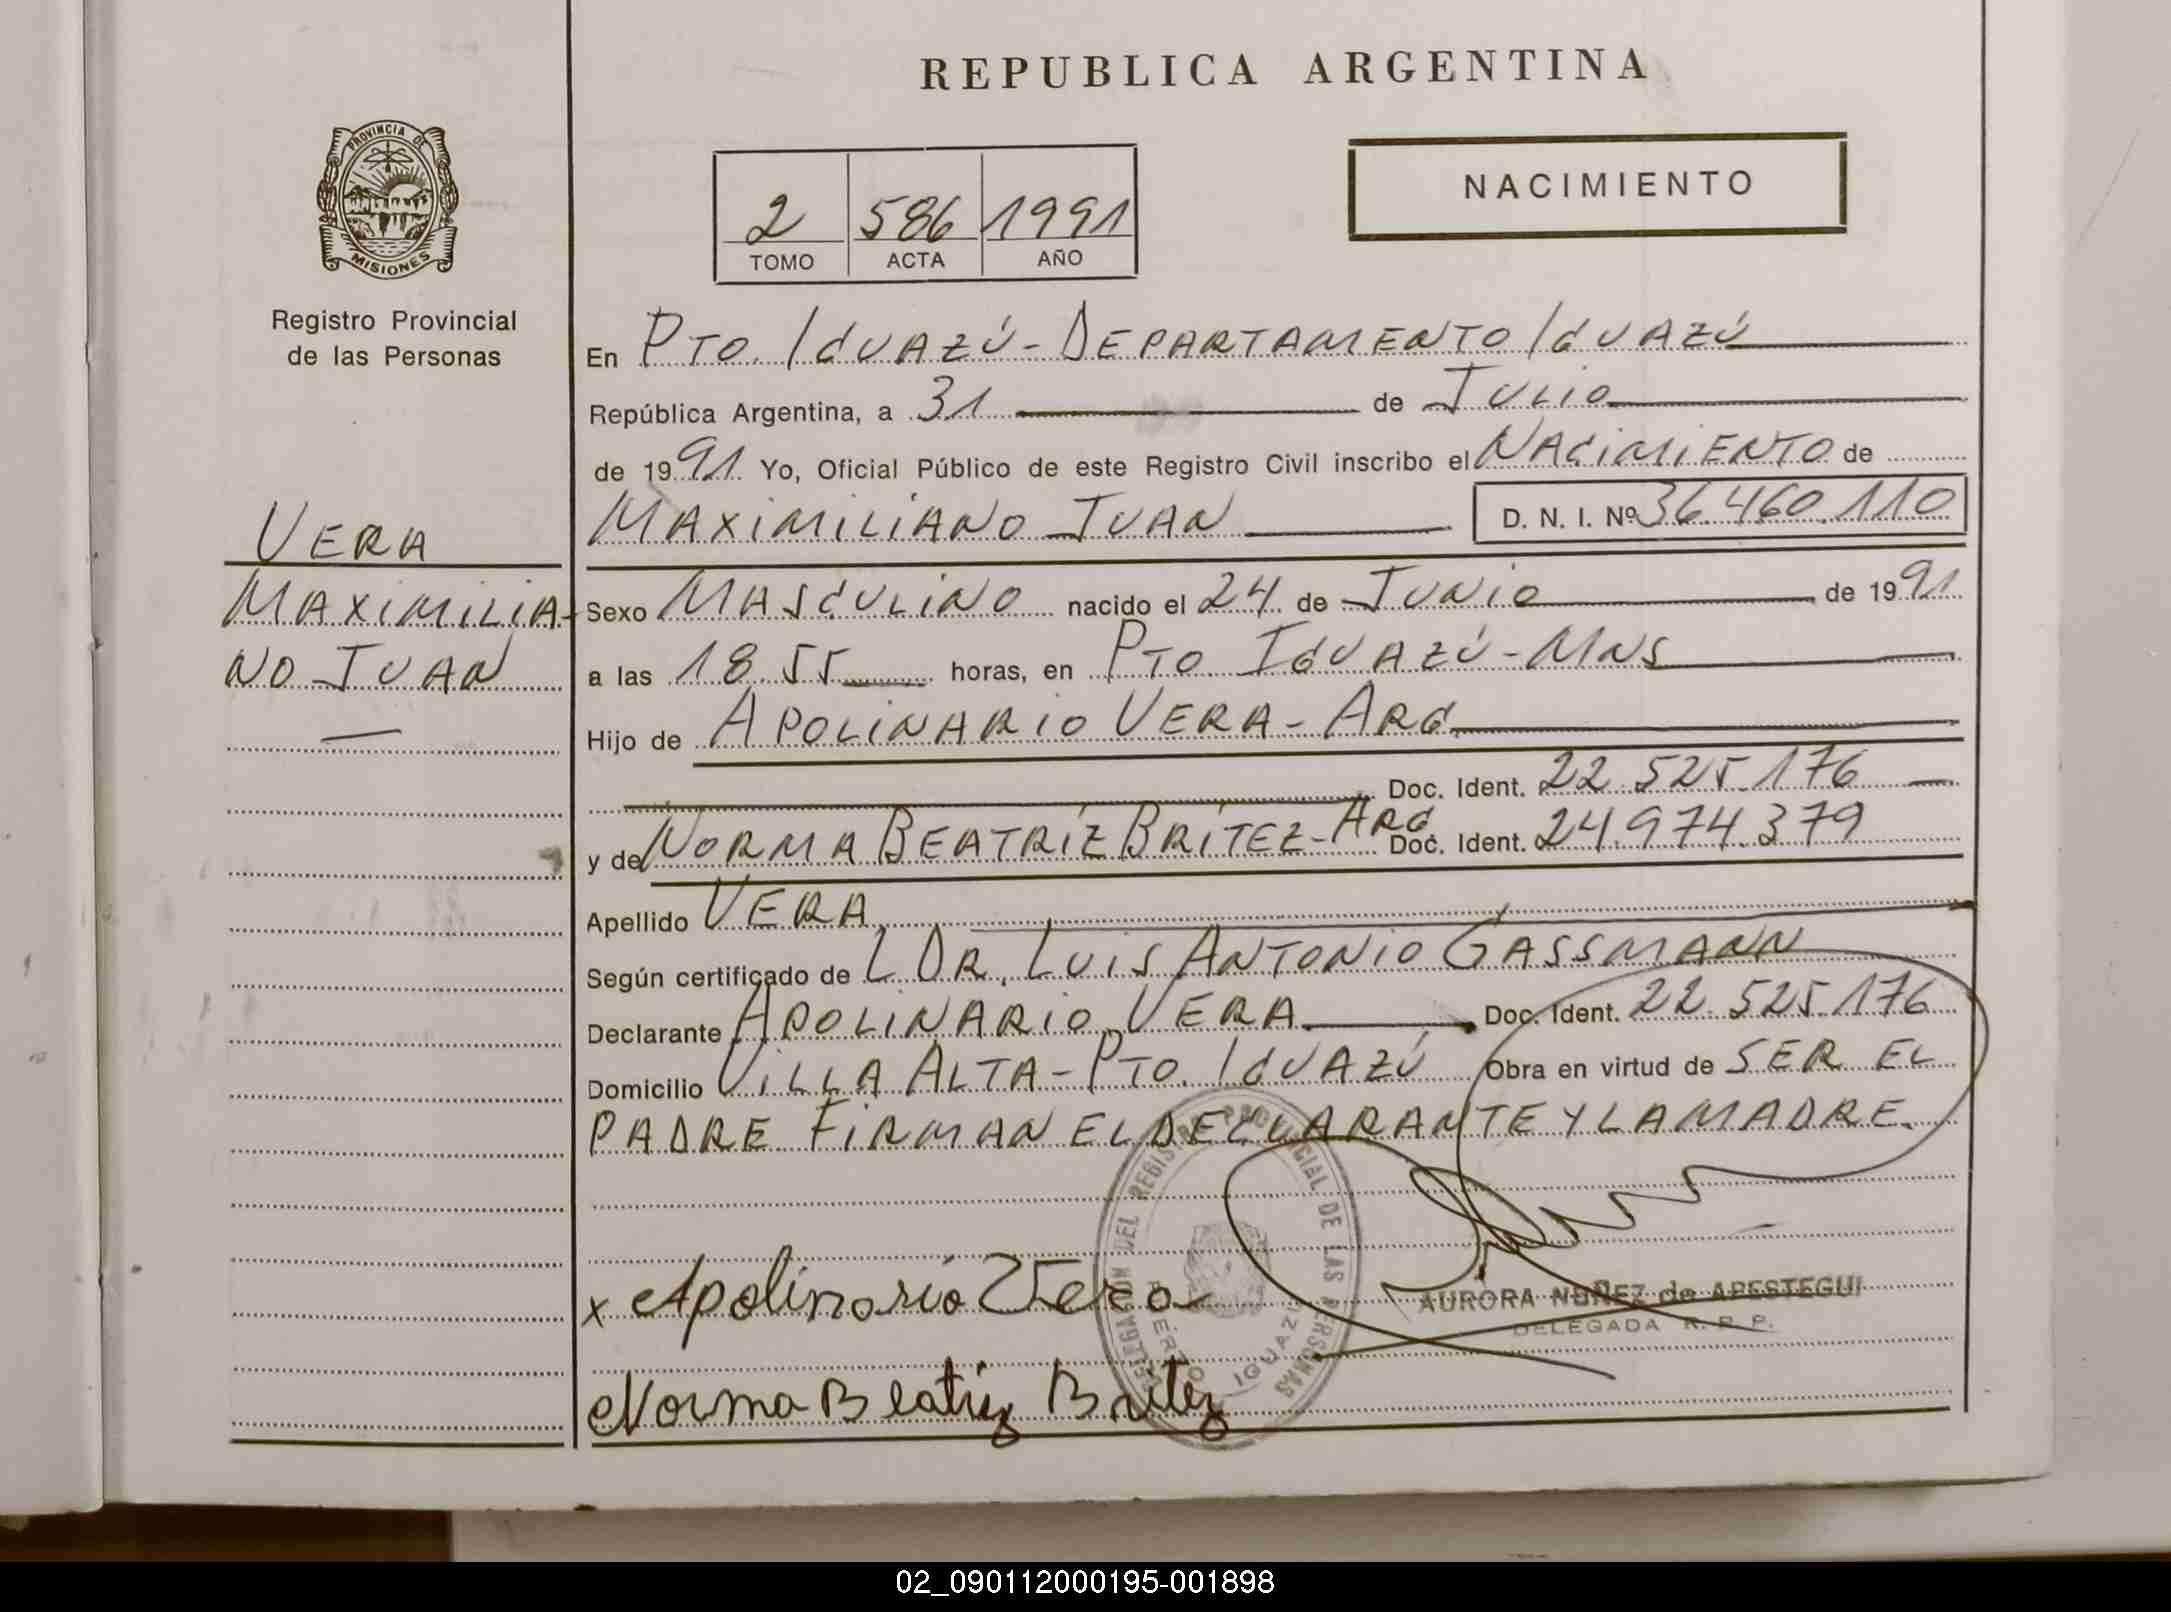 REPUBLICA ARGENTINA
PROVINCIA DE
MISIONES
Registro Provincial
de las Personas
2 586 1991
TOMO ACTA AÑO
NACIMIENTO
En PTO. IGUAZÚ - DEPARTAMENTO IGUAZÚ
República Argentina, a 31 de JULIO
de 1991. Yo, Oficial Público de este Registro Civil inscribo el NACIMIENTO de
MAXIMILIANO JUAN D. N. I. Nº 36.460.110
VERA
MAXIMILIA-
NO JUAN
Sexo MASCULINO nacido el 24 de JUNIO de 1991
a las 18.55 horas, en PTO. IGUAZÚ - MNS
Hijo de APOLINARIO VERA - ARG
Doc. Ident. 22.525.176
y de NORMA BEATRÍZ BRÍTEZ - ARG Doc. Ident. 24.974.379
Apellido VERA
Según certificado de L DR. LUIS ANTONIO GASSMANN
Declarante APOLINARIO VERA Doc. Ident. 22.525.176
Domicilio VILLA ALTA - PTO. IGUAZÚ Obra en virtud de SER EL
PADRE FIRMAN EL DECLARANTE Y LA MADRE.
DELEGACION DEL REGISTRO PROVINCIAL DE LAS PERSONAS
PUERTO IGUAZU
x Apolinario Vera
AURORA NUÑEZ de APESTEGUI
DELEGADA R. P. P.
Norma Beatriz Britez
02_090112000195-001898